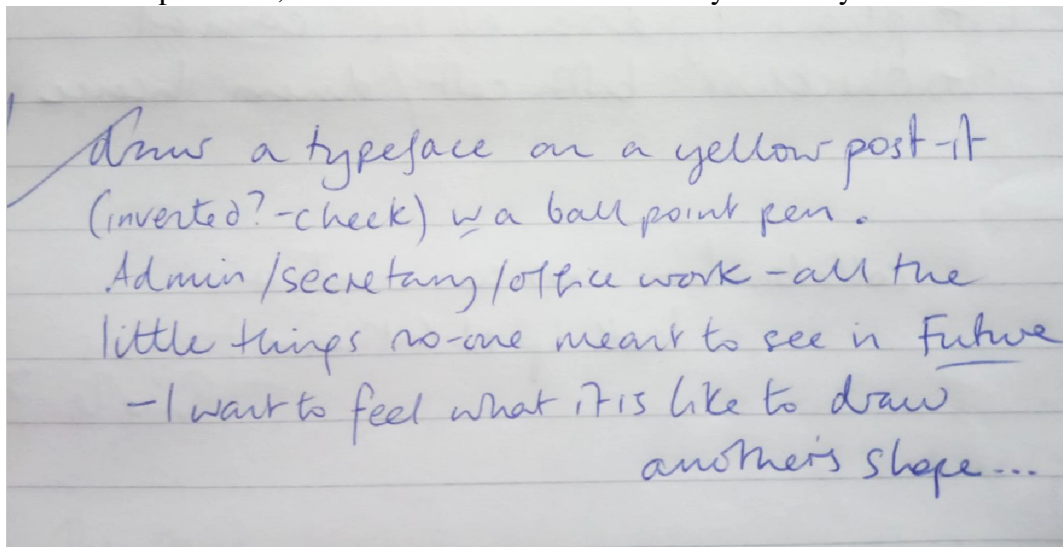 draw a typeface on a yellow post-it
(inverted?-check) w a ball point pen.
Admin/secretary/office work -all the
little things no-one meant to see in Future
- I want to feel what it is like to draw
another's shape...